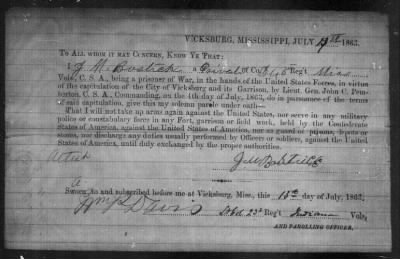 VICKSBURG, MISSISSIPPI, JULY 13th 1863.
TO ALL WHOM IT MAY CONCERN, KNOW YE THAT:
I J M Bostick a Private of Co. Reg't Miss
Vols., C. S. A., being a prisoner of War, in the hands of the United States Forces, in virtue
of the capitulation of the City of Vicksburg and its Garrison, by Lieut. Gen. John C. Pem-
berton, C. S. A., Commanding, on the 4th day of July, 1863, do in pursuance of the terms
of said capitulation, give this my solemn parole under oath—
That I will not take up arms again against the United States, nor serve in any military
police or constabulary force in any Fort, garrison or field work, held by the Confederate
States of America, against the United States of America, nor as guard of prisons, depots or
stores, nor discharge any duties usually performed by Officers or soldiers, against the United
States of America, until duly exchanged by the proper authorities.
Attest J M Bostick
Sworn to and subscribed before me at Vicksburg, Miss., this 13th day of July, 1863.
Wm P Davis 23d Reg't Indiana Vols,
AND PAROLLING OFFICER.